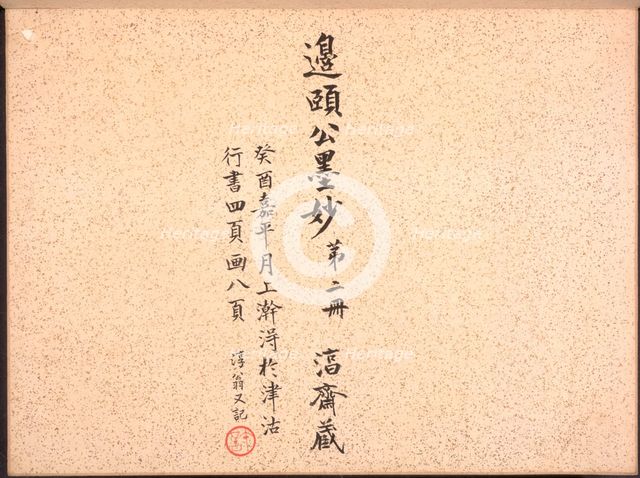 邊頤公墨妙 第二冊 㴉齋藏
癸酉嘉平月上澣淂於津沽
行書四頁画八頁 淳翁又記
Heritage
Heritage
Heritage
Heritage
Heritage
Heritage